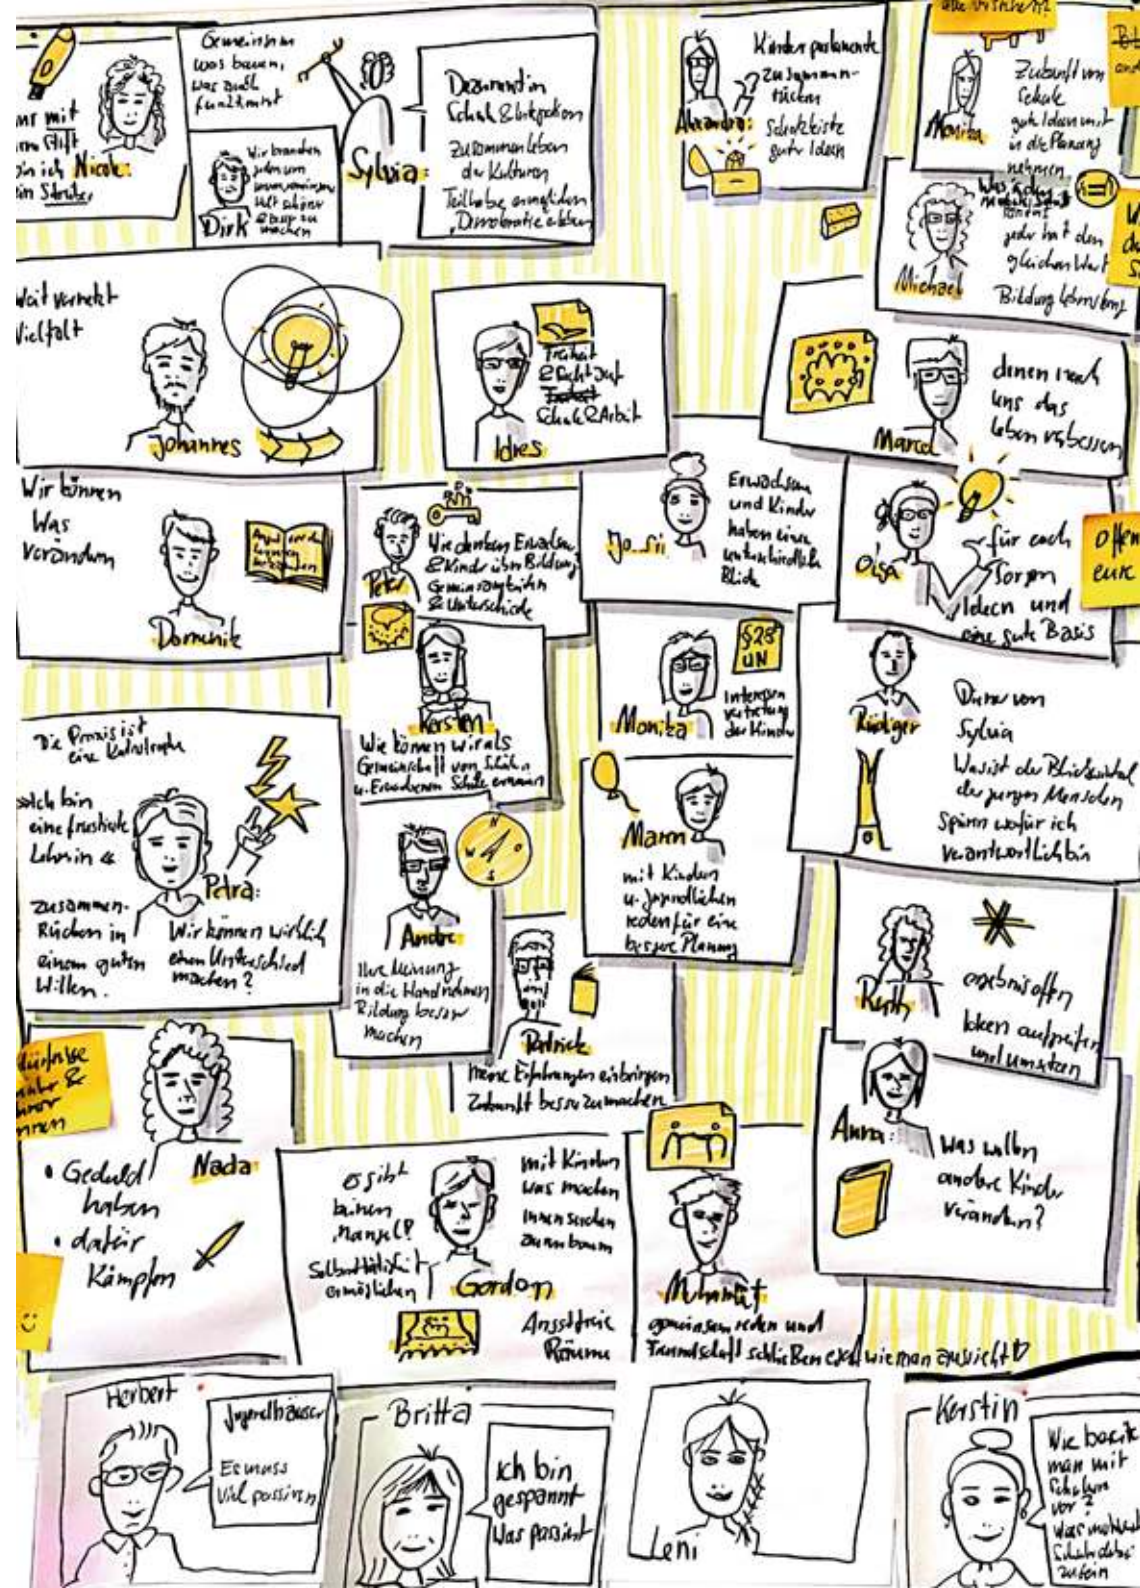 mit
Stift
bin ich Nicole:
ein
Gemeinsam
was bauen,
was auch
funktioniert
Dirk
Wir brauchen
machen
Sylvia:
Dezernentin
Schule & Integration
Zusammenleben
der Kulturen
Teilhabe ermöglichen
Demokratie erleben
Alexandra:
Kinderparlamente
zusammen-
rücken
Schatzkiste
guter Ideen
Monika
Zukunft von
Schule
gute Ideen mit
in die Planung
nehmen
Michael
jeder hat den
gleichen Wert
Bildung lebenslang
Weit vernetzt
Vielfalt
Johannes
Idres
Freiheit
Schule & Arbeit
Marcel
uns das
Leben verbessern
Wir können
Was
verändern
Domenik
Peter
Wie denken Erwachsene
& Kinder über Bildung
Gemeinsamkeiten
& Unterschiede
Erwachsene
und Kinder
haben einen
unterschiedlichen
Blick
Olga
für euch
Sorgen
Ideen und
eine gute Basis
Offen
eure
Kersten
Wie können wir als
Gemeinschaft von Schülern
u. Erwachsenen Schule erneuern
§28
UN
Monika
Interessen
vertretung
der Kinder
Rüdiger
Diener von
Sylvia
Was ist der Blickwinkel
der jungen Menschen
Spüren wofür ich
verantwortlich bin
Die Praxis ist
eine Katastrophe
»Ich bin
eine frustrierte
Lehrerin «
Petra:
zusammen-
Rücken in
einem guten
Willen.
Wir können wirklich
einen Unterschied
machen?
N
W O
S
Andre
Ihre Meinung
in die Hand nehmen
Bildung besser
machen
Maren
mit Kindern
u. Jugendlichen
reden für eine
bessere Planung
Patrick
meine Erfahrungen einbringen
Zukunft besser zu machen
Ruth
ergebnisoffen
Ideen aufgreifen
und umsetzen
Nada
• Geduld
haben
• dafür
Kämpfen
es gibt
keinen
Mangel!
Selbsttätigkeit
ermöglichen
Gordon
mit Kindern
was machen
Angstfreie
Räume
gemeinsam reden und
Freundschaft schließen egal wie man aussieht
Anna:
was wollen
andere Kinder
verändern?
Herbert
Jugendhäuser
Es muss
viel passieren
Britta
Ich bin
gespannt
Was passiert
Leni
Kerstin
Wie
man mit
Schülern
vor?